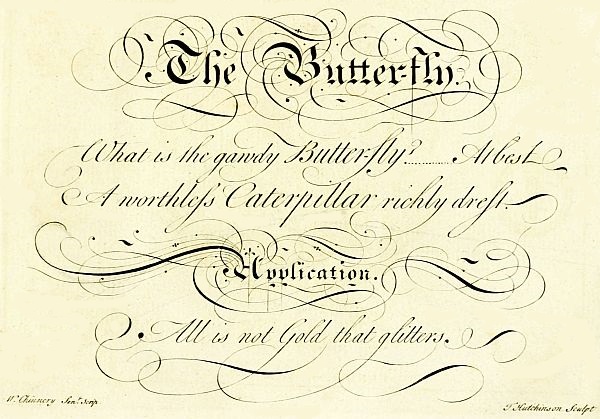 The Butter-fly.
What is the gawdy Butter-fly? ........ At best
A worthleſs Caterpillar richly dreſt.
Application.
All is not Gold that glitters.
W. Chinnery Senr. Scrip.
T. Hutchinson Sculpt